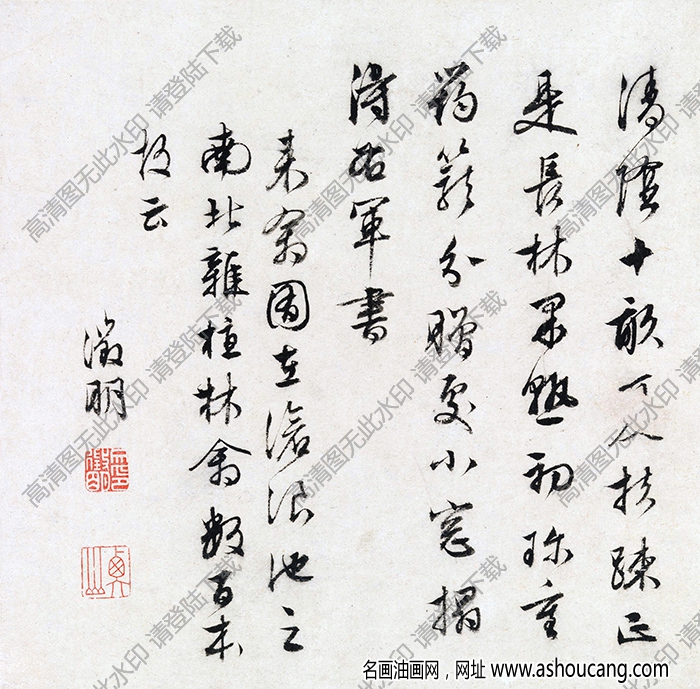 清陰十畝夏扶疎正
是長林果熟初珍重
筠籠分贈處小窓搨
得右軍書
來禽囿在滄浪池之
南北雜植林禽數百本
故云
徵明
高清图无此水印 请登陆下载
名画油画网，网址 www.ashoucang.com